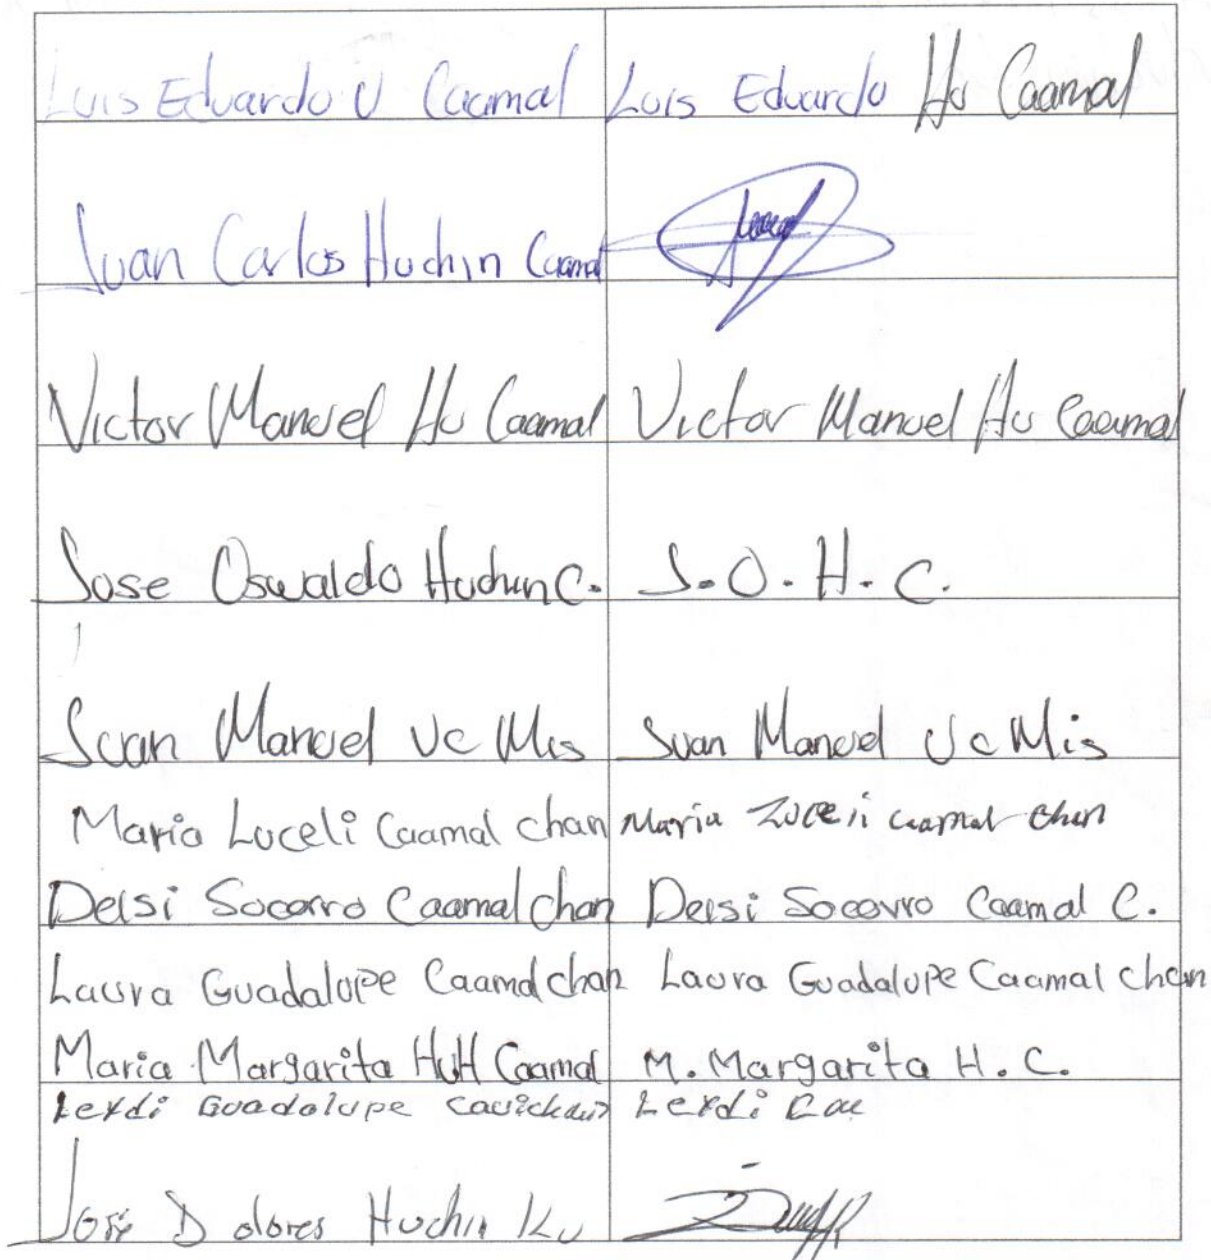 Luis Eduardo U Caamal Luis Eduardo Hu Caamal
Juan Carlos Huchin Caamal
Victor Manuel Hu Caamal Victor Manuel Hu Caamal
Jose Oswaldo Huchin C. J.O.H.C.
Juan Manuel Uc Mis Juan Manuel Uc Mis
Maria Luceli Caamal chan Maria Luceli caamal chan
Deisi Socorro Caamal chan Deisi Socorro Caamal C.
Laura Guadalupe Caamal chan Laura Guadalupe Caamal chan
Maria Margarita HuH Caamal M. Margarita H. C.
Leydi Guadalupe Leydi
José Dolores Huchin Ku